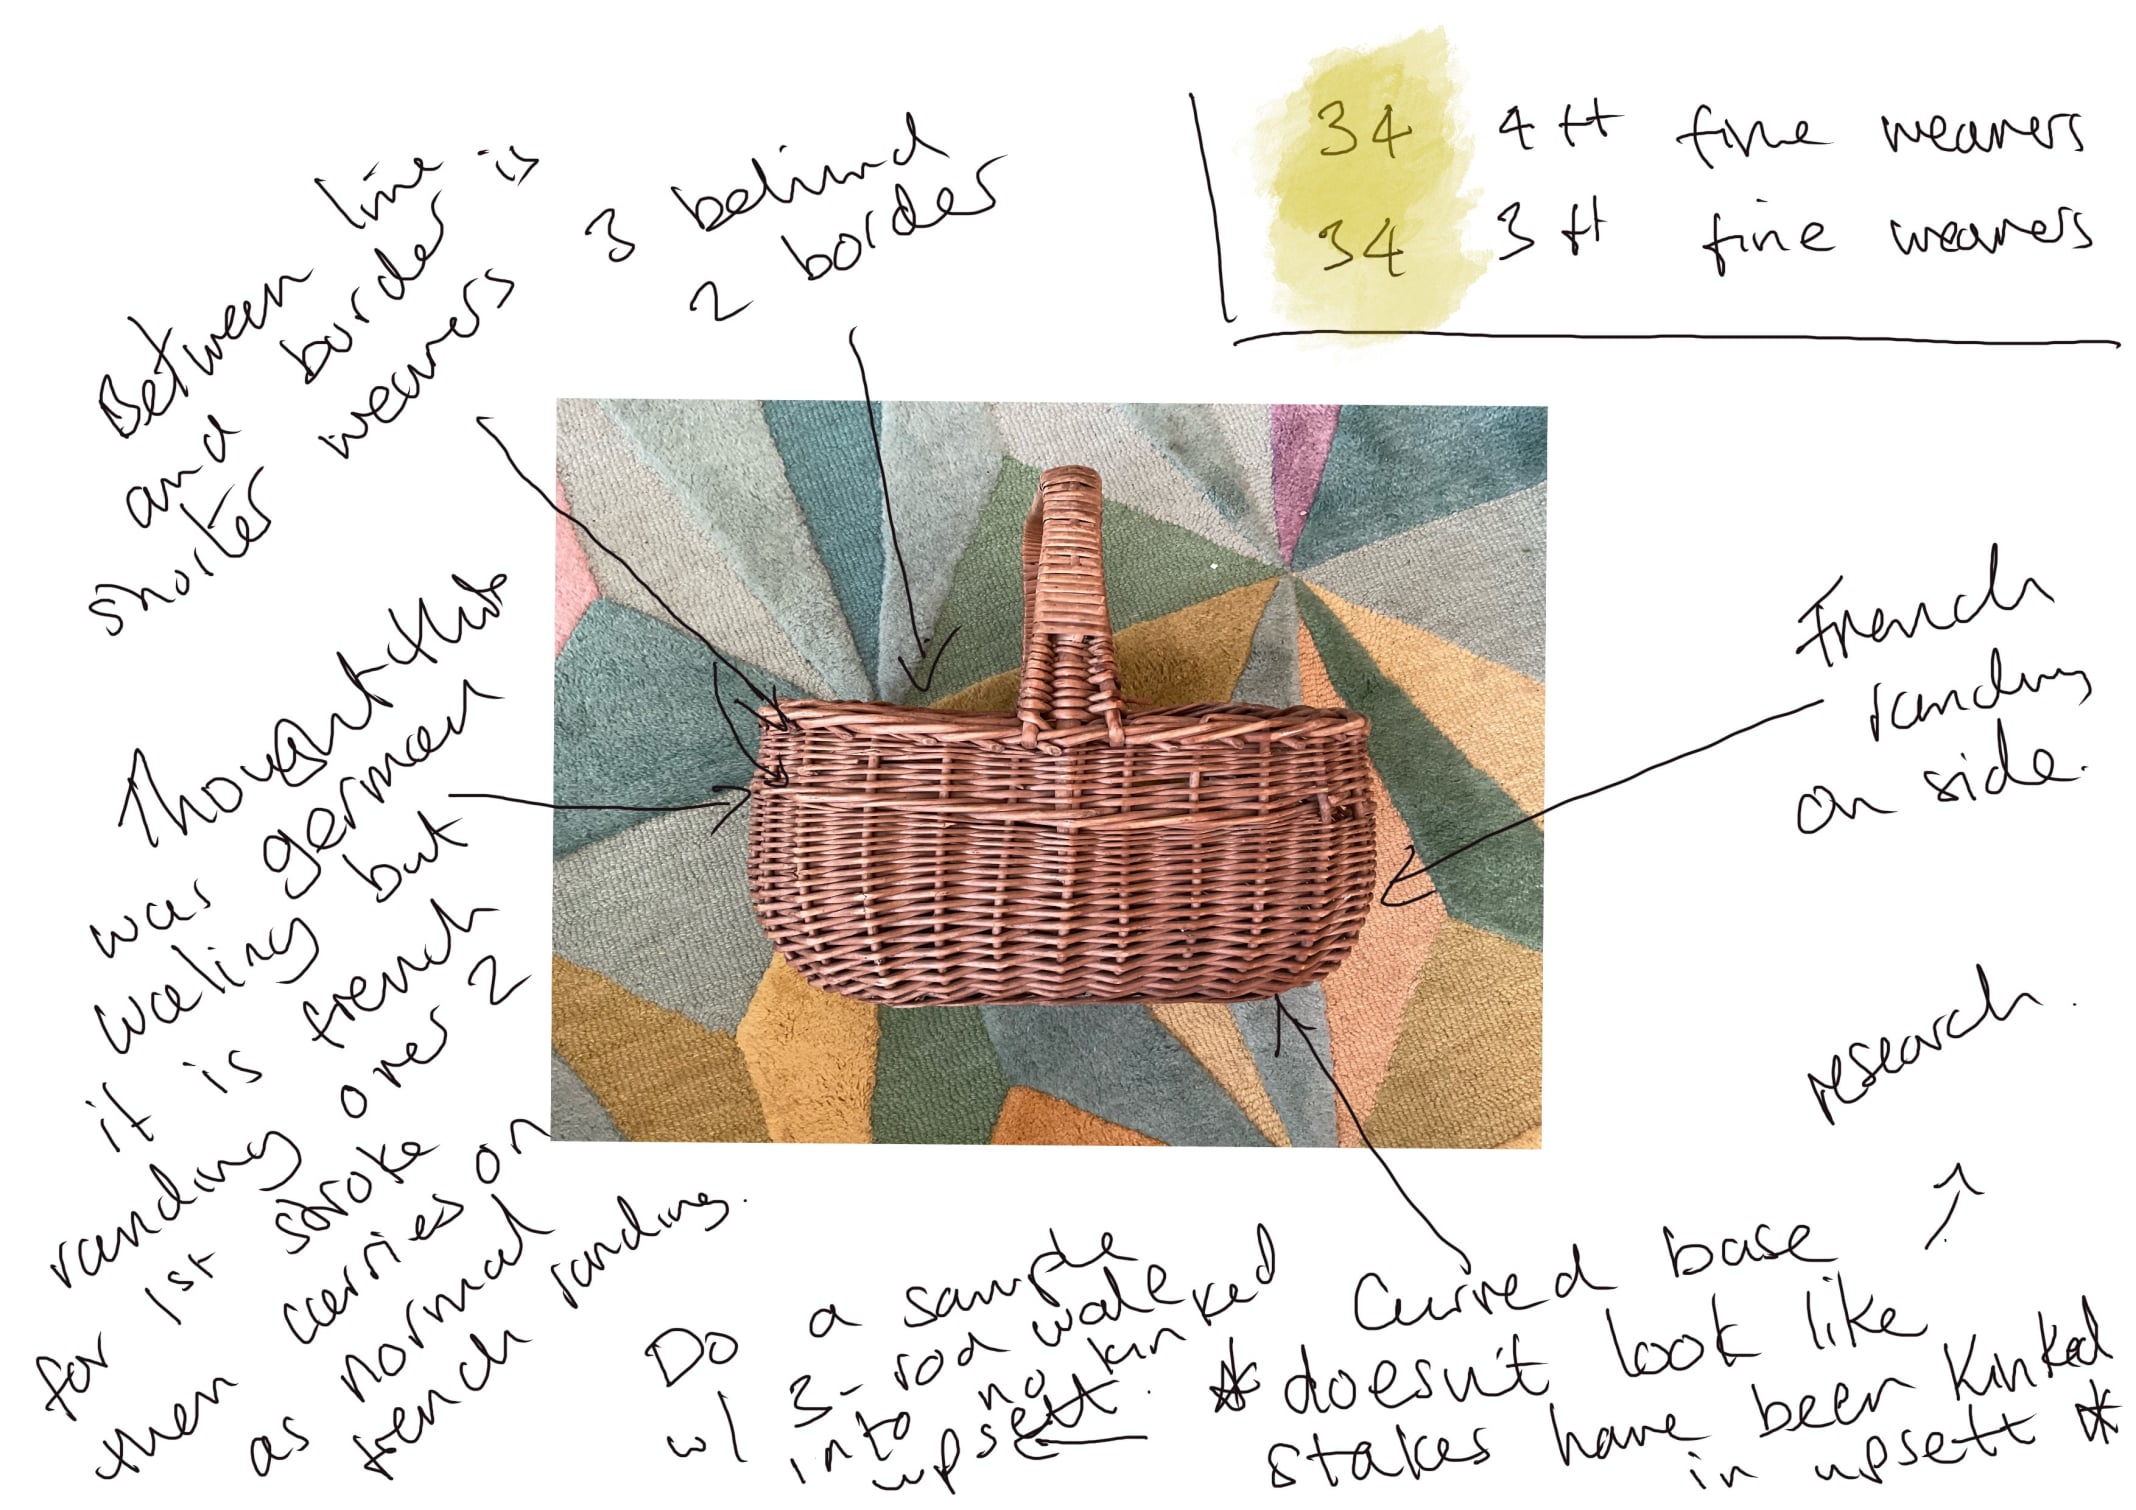 34 4ft fine weavers
34 3ft fine weavers
Between line
and border is
shorter weavers
3 behind
2 border
Thought this
was german
waling but
it is french
randing over 2
for 1st stroke
then carries on
as normal
french randing.
French
randing
on side.
research.
Curved base
* doesn't look like
stakes have been kinked
in upsett *
Do a sample
w/ 3-rod wale
into no kinked
upsett.